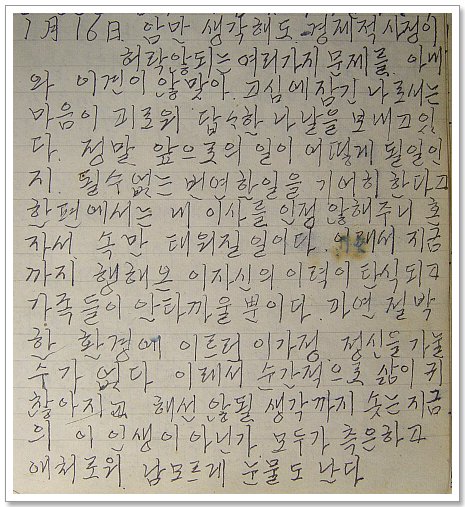 7月 16日. 암만 생각해도 경제적 사정이
허락않되는 여러가지 문제를, 아버
와 이견이 않맞아. 고심에 잠긴 나로서는
마음이 괴로워 답속한 나날을 보내고 있
다. 정말 앞으로의 일이 어떻게 될일인
지. 될수없는 번연한일을 기어히 한다고
한편에서는 내 의사를 인정 않해주니 혼
자서 속만 태워질 일이다. 이래서 지금
까지 행해온 이자신의 이력이 탄식되고
가족들이 안타까울 뿐이다. 과연 절박
한 환경에 이르러 이가정. 정신들 가눌
수가 없다. 이래서 순간적으로 삶이 귀
찮아지고 해선 않될 생각까지 솟는 지금
의 이 인생이 아닌가. 모두가 측은하고
애처로워 남모르게 눈물도 난다